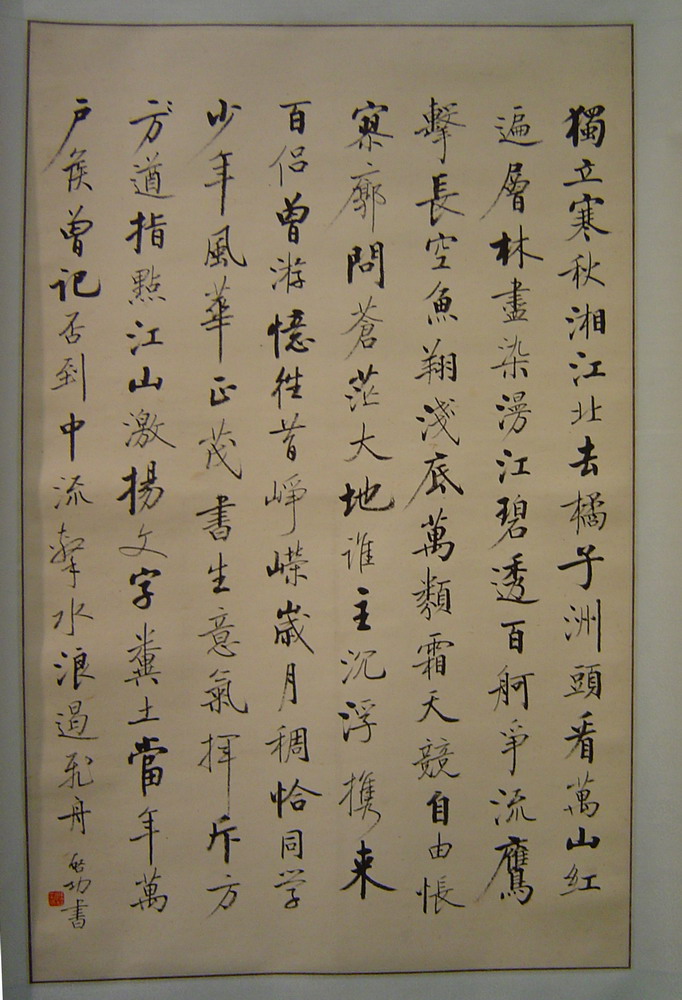 獨立寒秋湘江北去橘子洲頭看萬山紅
遍層林盡染漫江碧透百舸爭流鷹
擊長空魚翔淺底萬類霜天競自由悵
寥廓問蒼茫大地誰主沉浮携来
百侣曾游憶往昔崢嶸歲月稠恰同学
少年風華正茂書生意氣揮斥方
方遒指點江山激揚文字糞土當年萬
户侯曾记否到中流擊水浪遏飛舟 啟功書